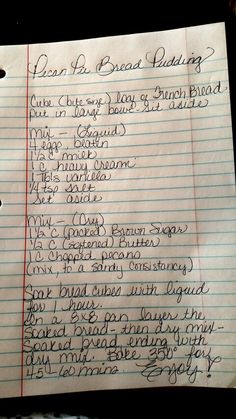 Pecan Pie Bread Pudding
Cube (bite size) loaf of French Bread
put in large bowl - set aside
Mix - (Liquid)
4 eggs, beaten
1 1/2 c milk
1 c heavy creame
1 Tbls vanilla
1/4 tsp salt
Set aside
Mix - (Dry)
1 1/2 C (packed) Brown Sugar
1/2 C (softened) Butter
1 C chopped pecans
(mix, to a sandy consistancy)
Soak bread cubes with liquid
for 1 hour.
On a 8x8 pan layer the
soaked bread - then dry mix -
soaked bread, ending with
dry mix. Bake 350° for
45-60 mins. Enjoy!